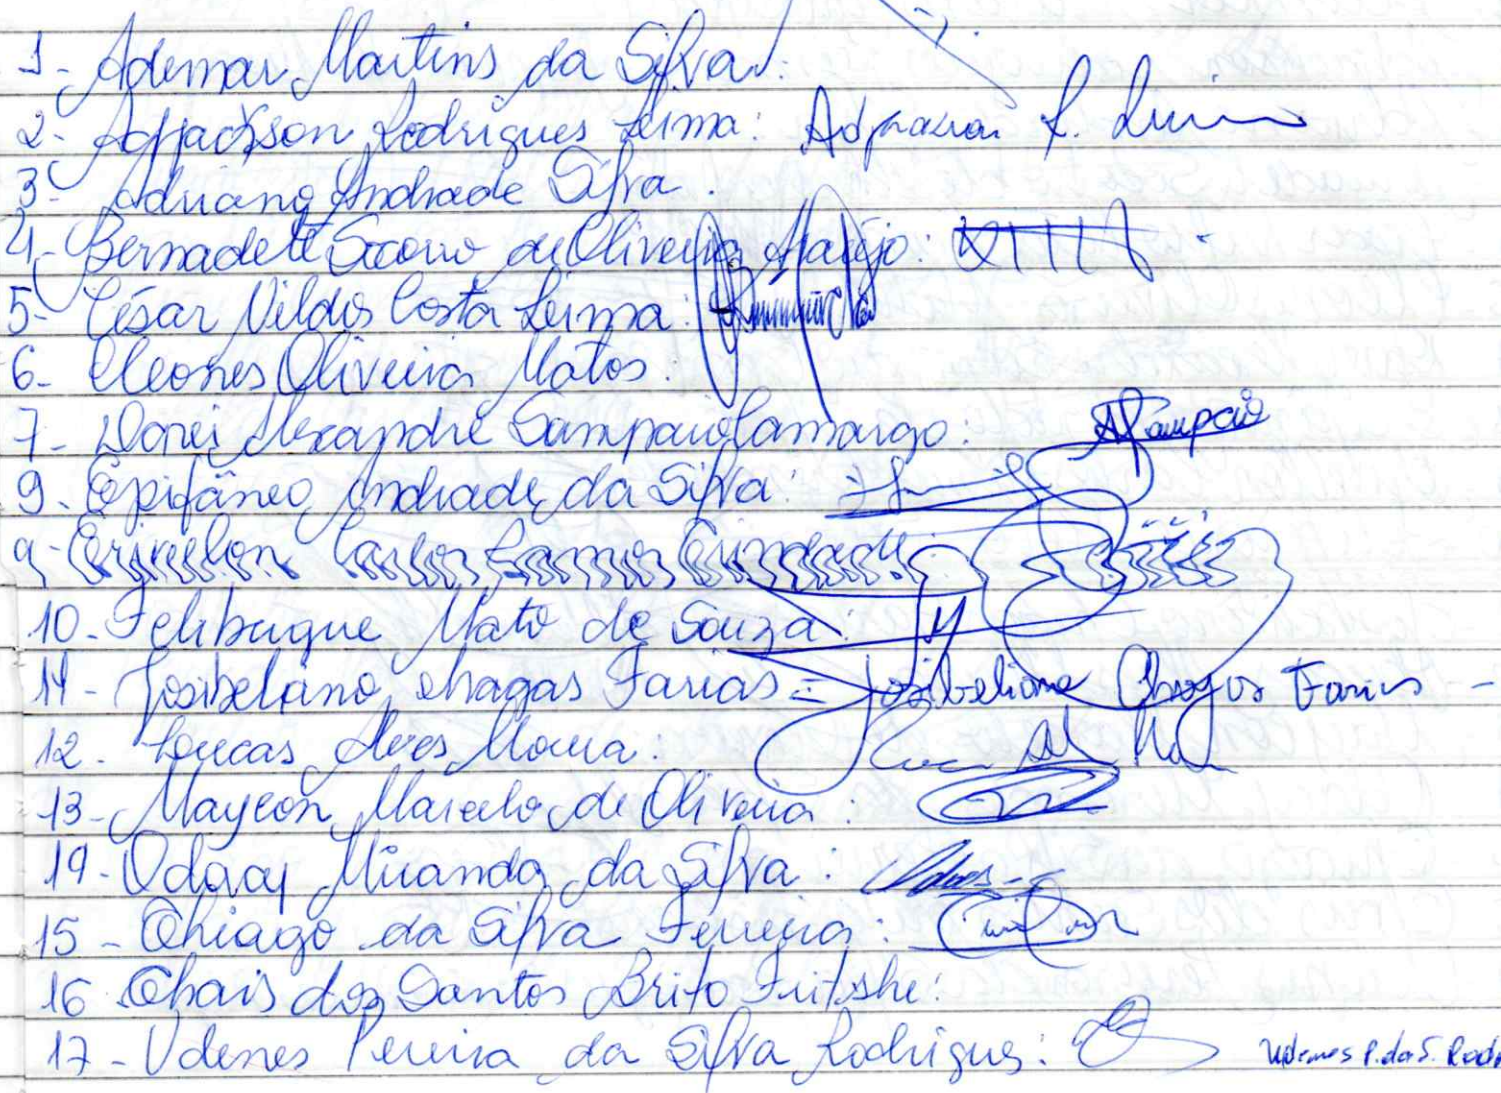 1- Ademar Martins da Silva:
2- Adjackson Rodrigues Lima: Adjackson R. Lima
3- Adriano Andrade Silva.
4- Bernadete Socorro de Oliveira Araújo:
5- César Nildos Costa Lima:
6- Cleones Oliveira Matos:
7- Dorei Alexandre Sampaio Camargo: ASampaio
9- Epifâneo Andrade da Silva:
9- Carlos Ramos Trindade:
10- Felibuque Mato de Souza:
11- Josibeliano chagas Farias = Josibeliano Chagas Farias -
12- Lucas Alves Moura:
13- Maycon Marcelo de Oliveira:
14- Odoraj Miranda da Silva:
15- Thiago da Silva Ferreira:
16 Thais dos Santos Brito Fritshe:
17- Udenes Pereira da Silva Rodrigues: Udenes P. da S. Rod